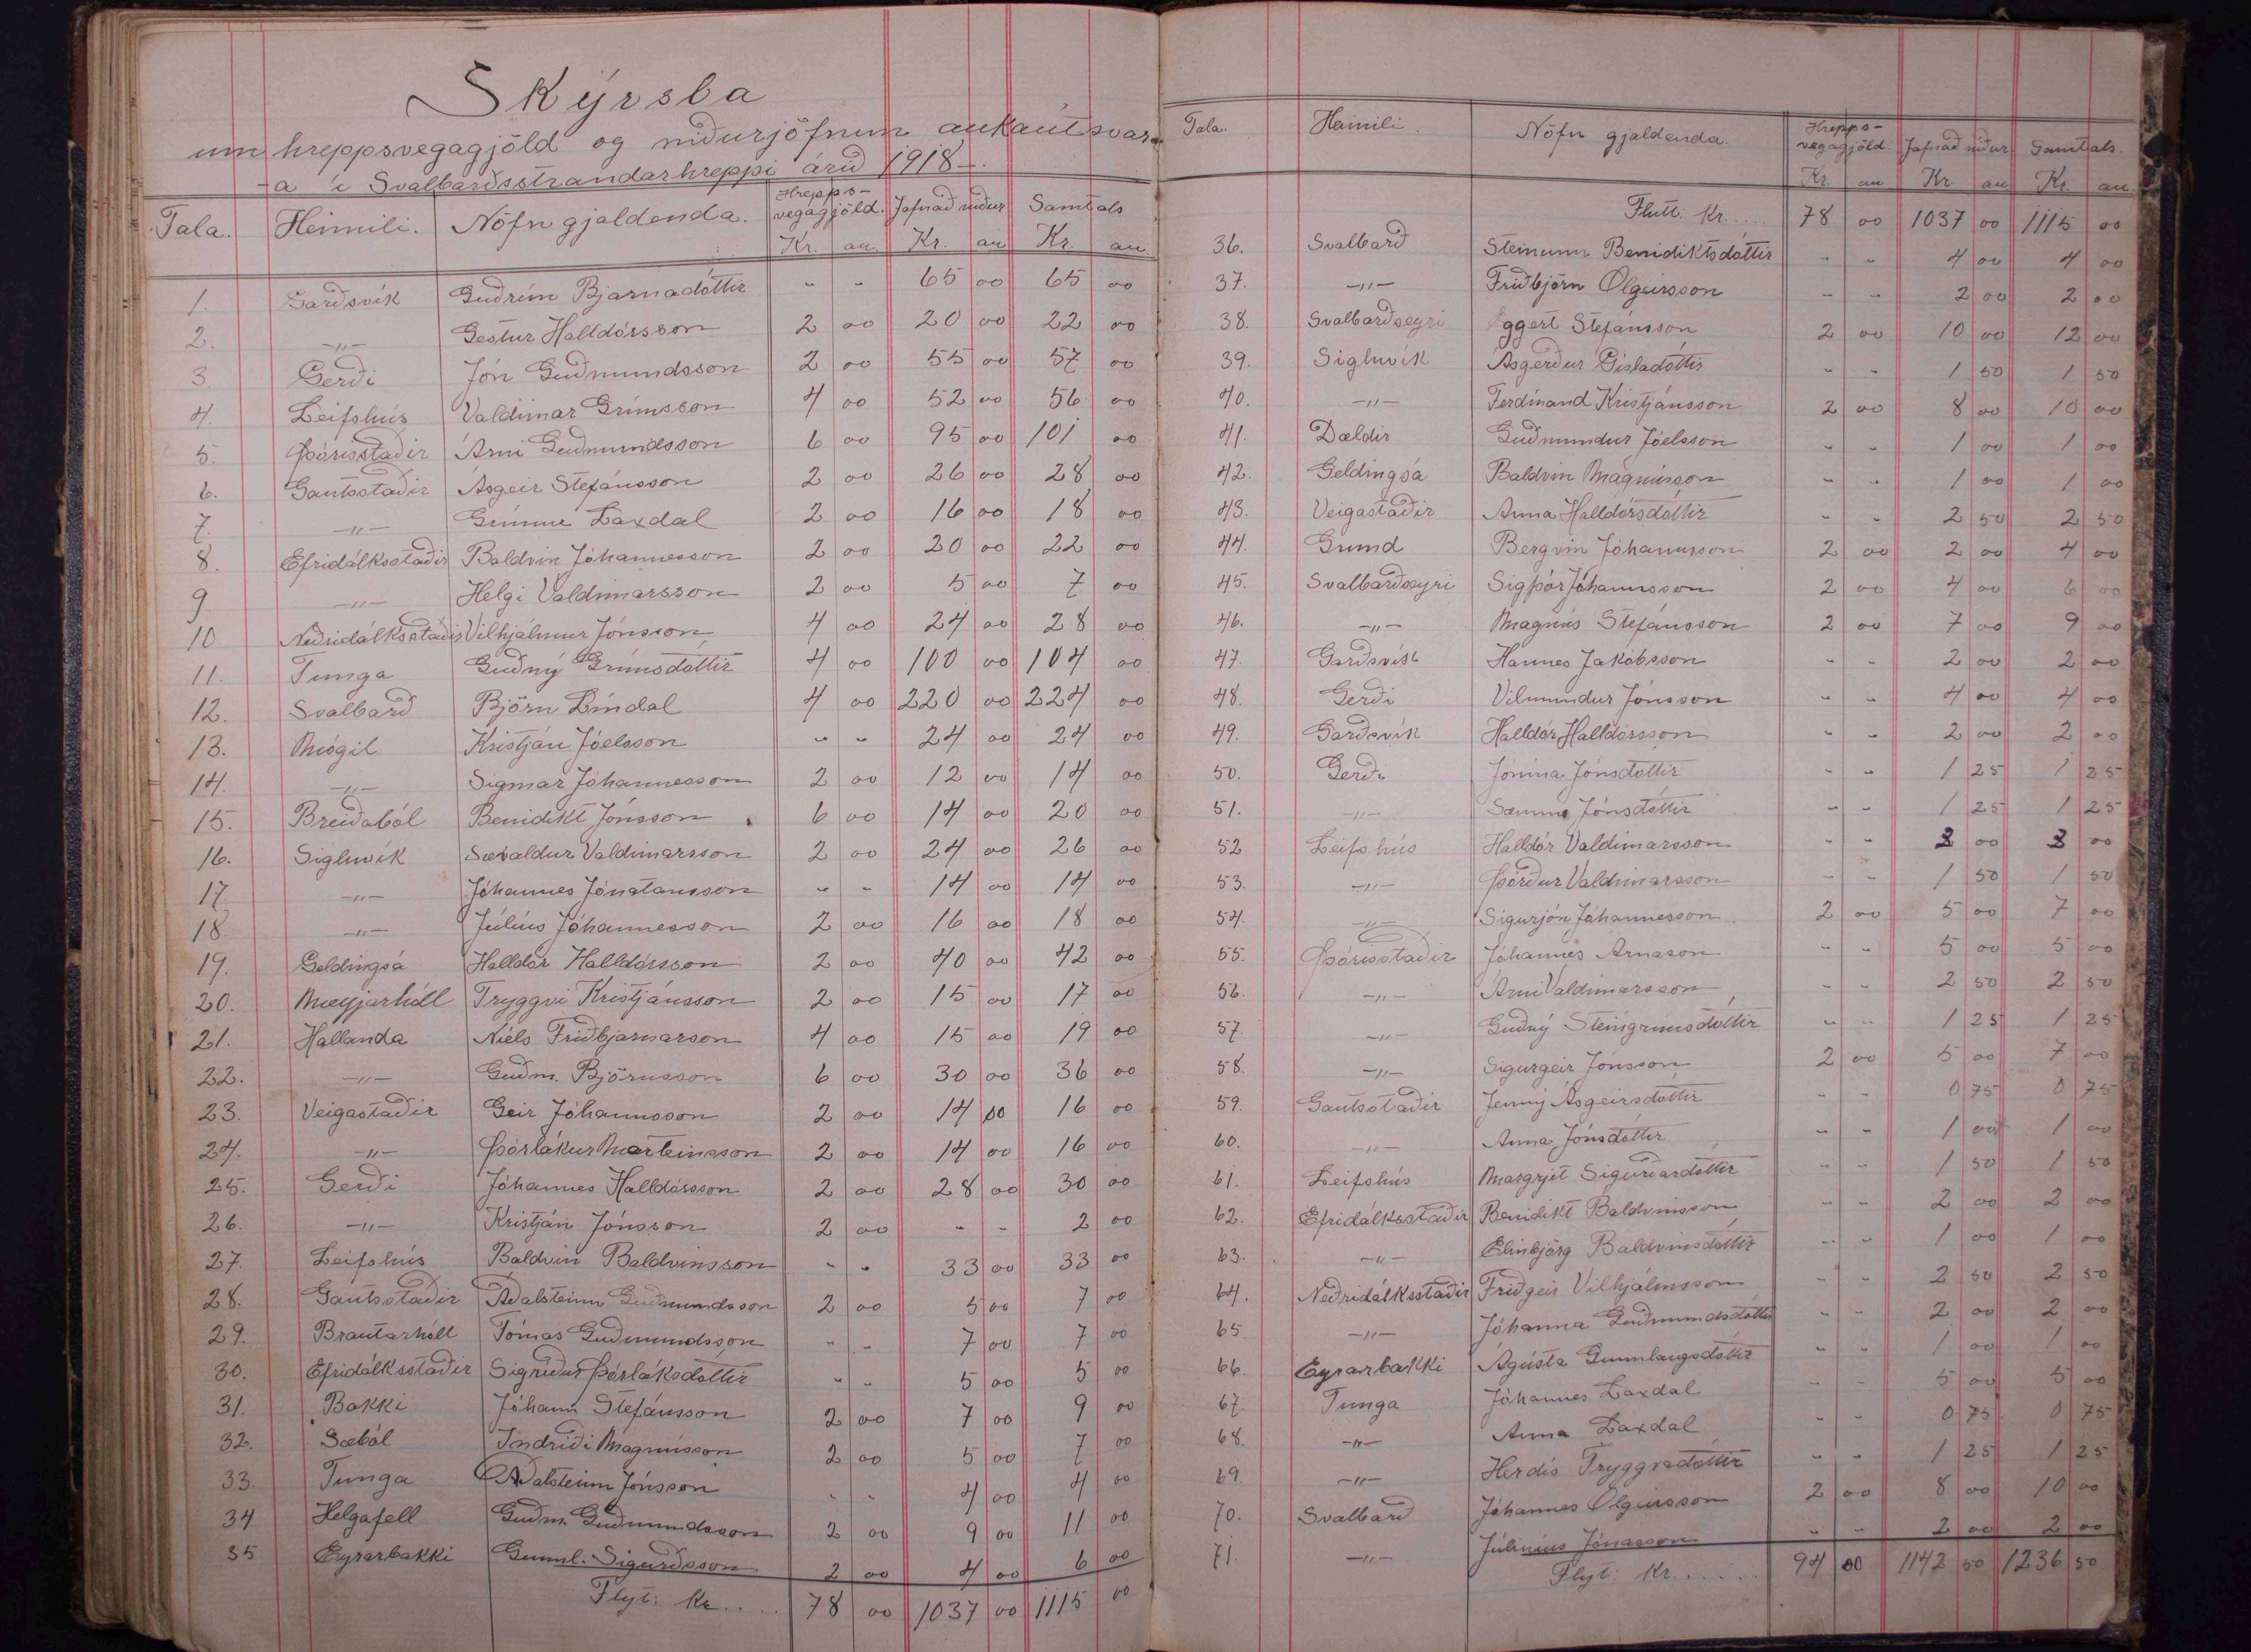 Skýrsla
um hreppsvegagjöld og niðurjöfnun aukaútsvar-
-a í Svalbarðsstrandarhreppi árið 1918-.
Tala. Heimili. Nöfn gjaldenda. Hrepps-vegagjöld. Jafnað niður Samtals
Kr. au. Kr. au Kr. au.
1. Garðsvík Guðrún Bjarnadóttir " " 65 00 65 00
2. -"- Gestur Halldórsson 2 00 20 00 22 00
3. Gerði Jón Guðmundsson 2 00 55 00 57 00
4. Leifshús Valdimar Grímsson 4 00 52 00 56 00
5. Þórisstaðir Árni Guðmundsson 6 00 95 00 101 00
6. Gautsstaðir Ásgeir Stefánsson 2 00 26 00 28 00
7. -"- Grímur Laxdal 2 00 16 00 18 00
8. Efridálksstaðir Baldvin Jóhannesson 2 00 20 00 22 00
9 -"- Helgi Valdimarsson 2 00 5 00 7 00
10. Neðridálksstaðir Vilhjálmur Jónsson 4 00 24 00 28 00
11. Tunga Guðný Grímsdóttir 4 00 100 00 104 00
12. Svalbarð Björn Líndal 4 00 220 00 224 00
13. Mógil Kristján Jóelsson " " 24 00 24 00
14. -"- Sigmar Jóhannesson 2 00 12 00 14 00
15. Breiðaból Benidikt Jónsson 6 00 14 00 20 00
16. Sigluvík Sævaldur Valdimarsson 2 00 24 00 26 00
17. -"- Jóhannes Jónatansson " " 14 00 14 00
18. -"- Júlíus Jóhannesson 2 00 16 00 18 00
19. Geldingsá Halldór Halldórsson 2 00 40 00 42 00
20. Meyjarhóll Tryggvi Kristjánsson 2 00 15 00 17 00
21. Hallanda Níels Friðbjarnarson 4 00 15 00 19 00
22. -"- Guðm. Björnsson 6 00 30 00 36 00
23. Veigastaðir Geir Jóhannsson 2 00 14 00 16 00
24. -"- Þorlákur Marteinsson 2 00 14 00 16 00
25. Gerði Jóhannes Halldórsson 2 00 28 00 30 00
26. -"- Kristján Jónsson 2 00 " " 2 00
27. Leifshús Baldvin Baldvinsson " " 33 00 33 00
28. Gautsstaðir Aðalsteinn Guðmundsson 2 00 5 00 7 00
29. Brautarhóll Tómas Guðmundsson " " 7 00 7 00
30. Efridálksstaðir Sigríður Þorláksdóttir " " 5 00 5 00
31. Bakki Jóhann Stefánsson 2 00 7 00 9 00
32. Sæból Indriði Magnússon 2 00 5 00 7 00
33. Tunga Aðalsteinn Jónsson " " 4 00 4 00
34 Helgafell Guðm. Guðmundsson 2 00 9 00 11 00
35 Eyrarbakki Gunnl. Sigurðsson 2 00 4 00 6 00
Flyt: Kr..... 78 00 1037 00 1115 00
Tala. Heimili. Nöfn gjaldenda. Hrepps-vegagjöld. Jafnað niður Samtals.
Kr. au Kr. au Kr. au.
Flutt: Kr..... 78 00 1037 00 1115 00
36. Svalbarð Steinunn Benidiktsdóttir " " 4 00 4 00
37. -"- Friðbjörn Olgeirsson " " 2 00 2 00
38. Svalbarðseyri Eggert Stefánsson 2 00 10 00 12 00
39. Sigluvík Ásgerður Gísladóttir " " 1 50 1 50
40. -"- Ferdínand Kristjánsson 2 00 8 00 10 00
41. Dældir Guðmundur Jóelsson " " 1 00 1 00
42. Geldingsá Baldvin Magnússon " " 1 00 1 00
43. Veigastaðir Anna Halldórsdóttir " " 2 50 2 50
44. Grund Bergvin Jóhannsson 2 00 2 00 4 00
45. Svalbarðseyri Sigþór Jóhannsson 2 00 4 00 6 00
46. -"- Magnús Stefánsson 2 00 7 00 9 00
47. Garðsvík Hannes Jakobsson " " 2 00 2 00
48. Gerði Vilmundur Jónsson " " 4 00 4 00
49. Garðsvík Halldór Halldórsson " " 2 00 2 00
50. Gerði Jónína Jónsdóttir " " 1 25 1 25
51. -"- Sæunn Jónsdóttir " " 1 25 1 25
52. Leifshús Halldór Valdimarsson " " 3 00 3 00
53. -"- Þórður Valdimarsson " " 1 50 1 50
54. -"- Sigurjón Jóhannesson 2 00 5 00 7 00
55. Þórisstaðir Jóhannes Árnason " " 5 00 5 00
56. -"- Árni Valdimarsson " " 2 50 2 50
57. -"- Guðný Steingrímsdóttir " " 1 25 1 25
58. -"- Sigurgeir Jónsson 2 00 5 00 7 00
59. Gautsstaðir Jenný Ásgeirsdóttir " " 0 75 0 75
60. -"- Anna Jónsdóttir " " 1 00 1 00
61. Leifshús Margrjet Sigurðardóttir " " 1 50 1 50
62. Efridálksstaðir Benidikt Baldvinsson " " 2 00 2 00
63. -"- Elinbjörg Baldvinsdóttir " " 1 00 1 00
64. Neðridálksstaðir Friðgeir Vilhjálmsson " " 2 50 2 50
65. -"- Jóhanna Guðmundsdóttir " " 2 00 2 00
66. Eyrarbakki Ágústa Gunnlaugsdóttir " " 1 00 1 00
67. Tunga Jóhannes Laxdal " " 5 00 5 00
68. -"- Anna Laxdal " " 0 75 0 75
69. -"- Herdís Tryggvadóttir " " 1 25 1 25
70. Svalbarð Jóhannes Olgeirsson 2 00 8 00 10 00
71. -"- Júlíníus Jónasson " " 2 00 2 00
Flyt: Kr...... 94 00 1142 50 1236 50